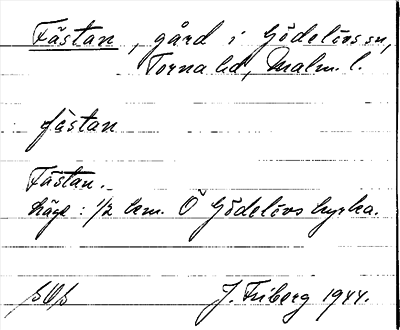 Fästan, gård i Gödelövs sn,
Torna hd, Malm. l.
fästan
Fästan.
Läge: 1/2 km. Ö Gödelövs kyrka.
J. Friberg 1944.